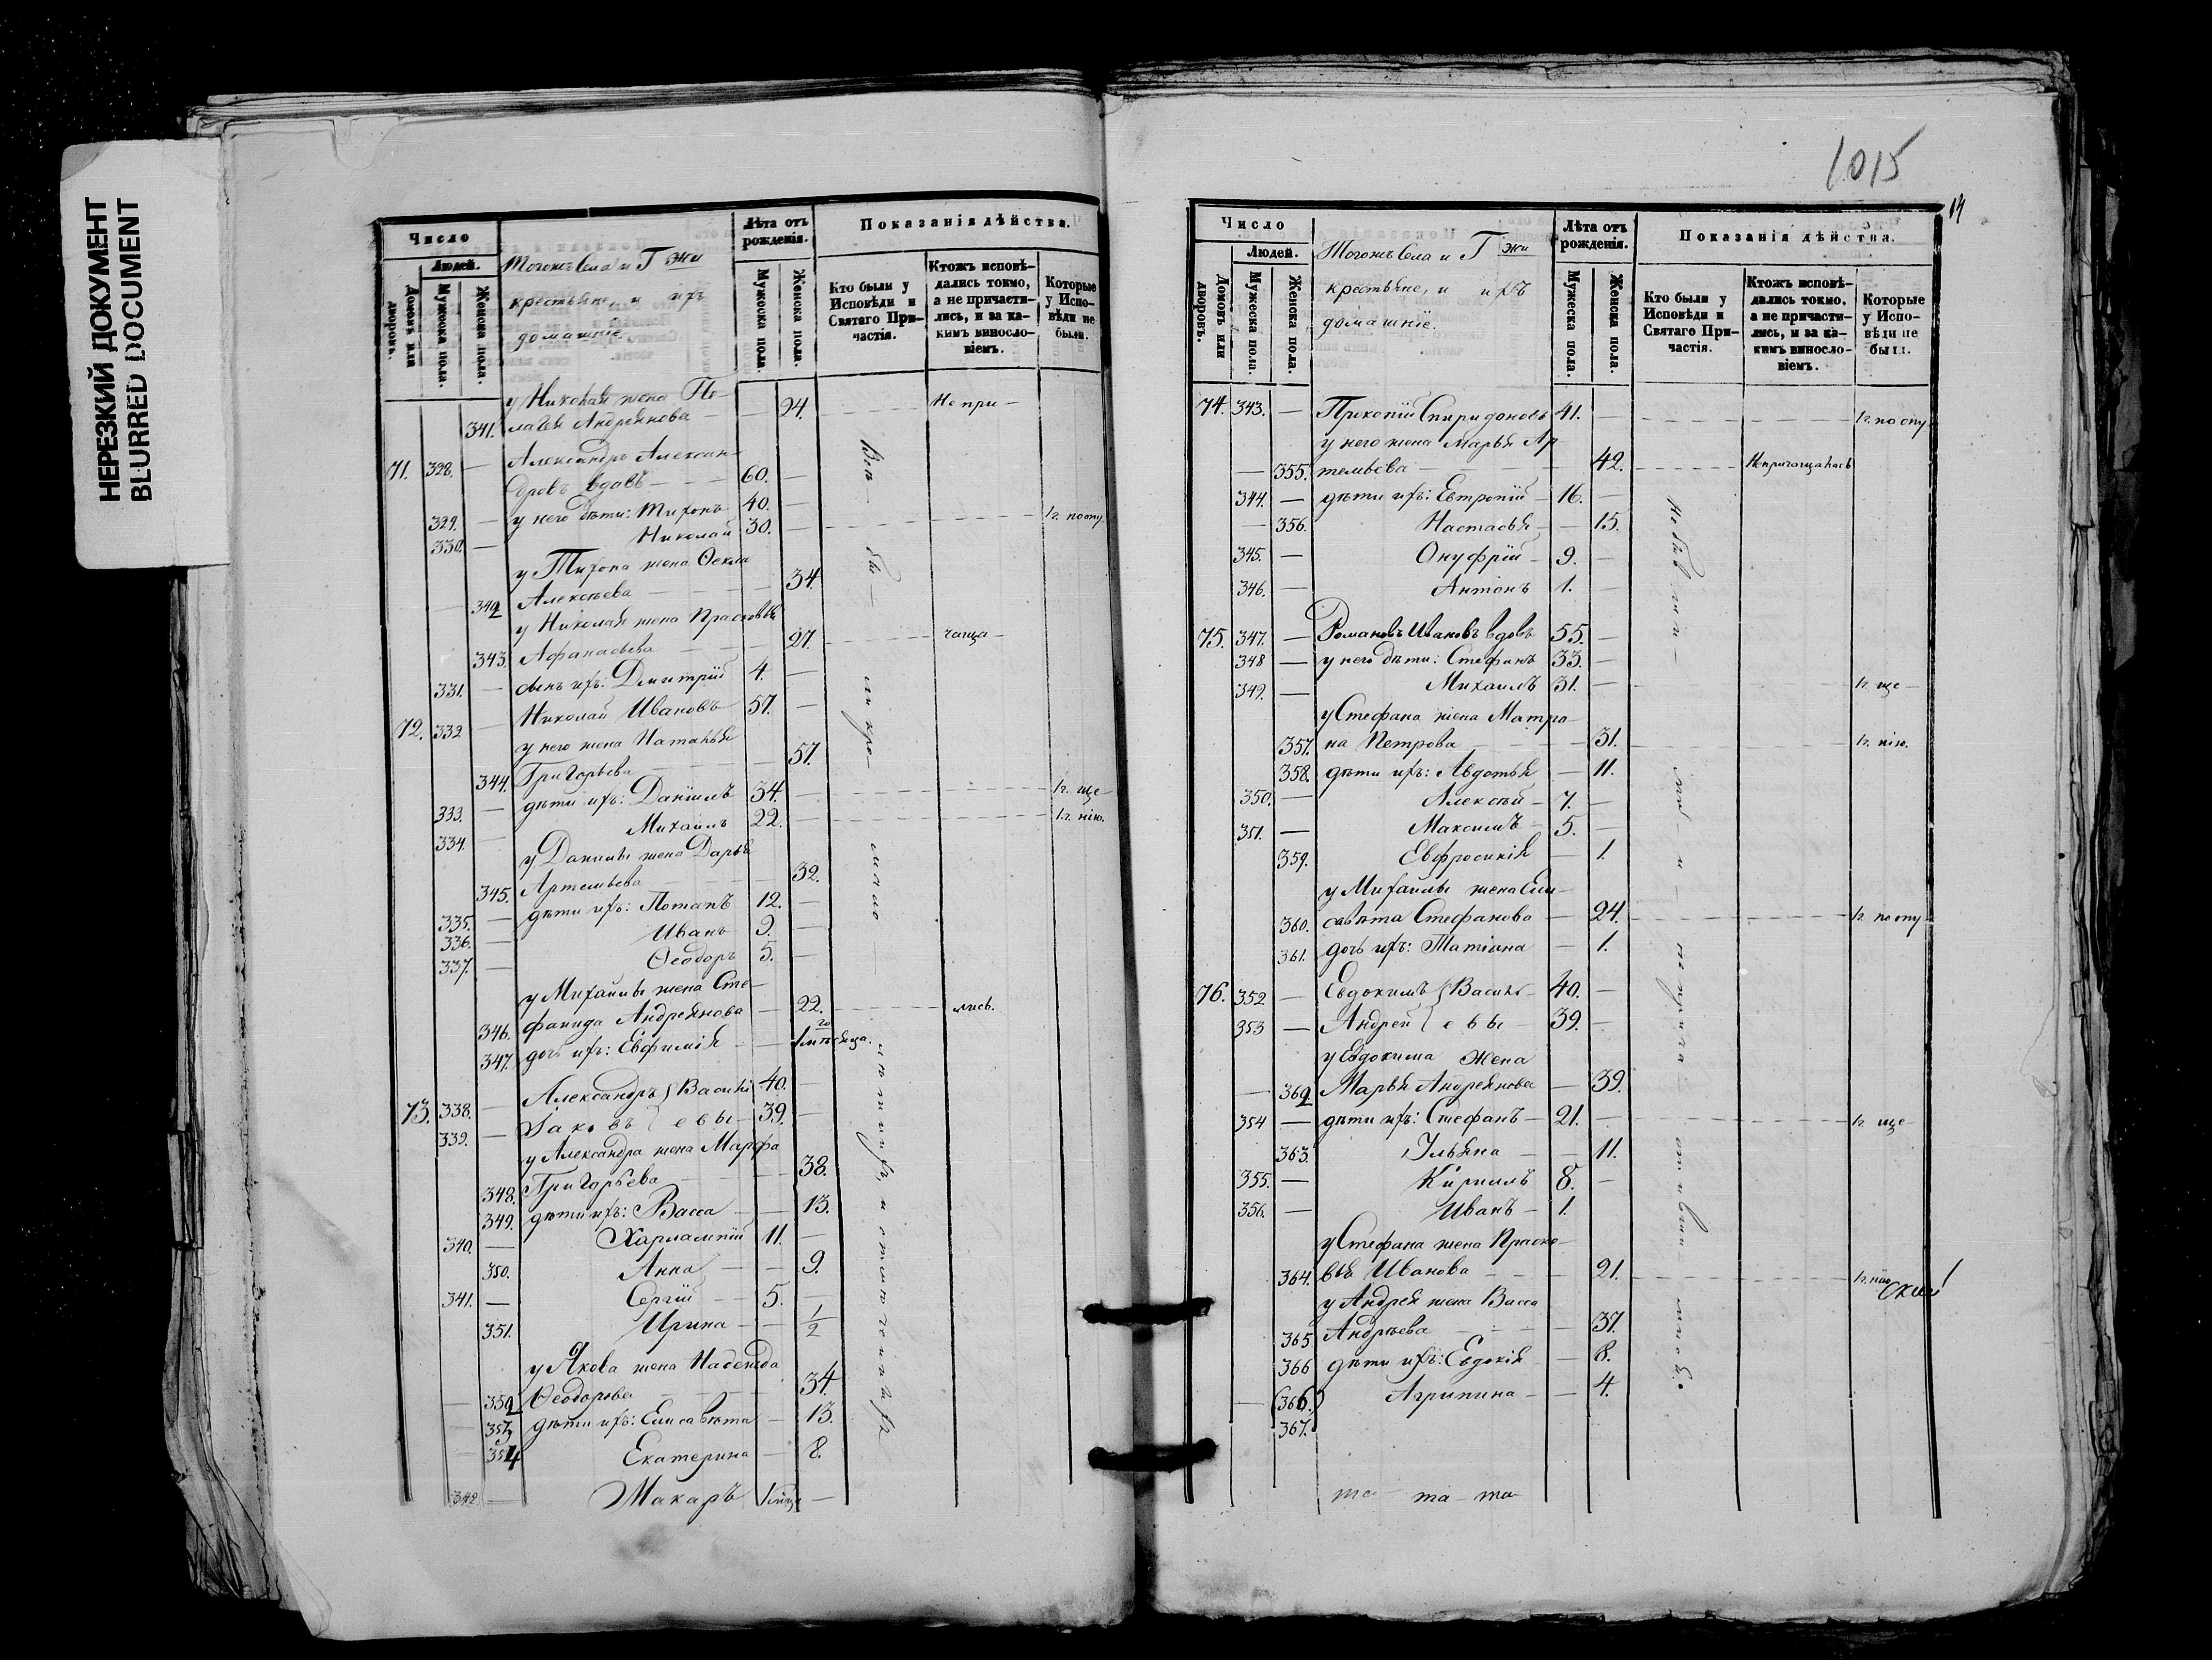 НЕРЕЗКИЙ ДОКУМЕНТ
BLURRED DOCUMENT
Число
Людей.
Домовъ или дворовъ.
Мужеска пола.
Женска пола.
Тогожъ Села и Гжи
крестьяне, и ихъ
домашніе.
Лѣта отъ рожденія.
Мужеска пола.
Женска пола.
Показанія дѣйства.
Кто были у Исповѣди и Святаго Причастія.
Ктожъ исповѣдались токмо, а не причастились, и за какимъ винословіемъ.
Которые у Исповѣди не были.
у Николая жена Пе-
341. лагея Андреянова — 24. Не при-
71. 328. — Александръ Алексан-
дровъ вдовъ — 60. —
329. — у него дѣти: Тихонъ 40. —
330. — Николай 30. — 1 г. по опу-
у Тихона жена Ѳекла
342 Алексѣева — 34.
у Николая жена Прасковья
343. Афанасьева — 27. чаща-
331. — сынъ ихъ: Дмитрій 4. —
72. 332 — Николай Ивановъ 57. —
у него жена Наталья
344. Григорьева — 57.
333. — дѣти ихъ: Даніилъ 34. — 1 г. ще-
334. — Михаилъ 22. — 1 г. нію.
у Данилы жена Дарья
345. Артемьева — 32.
335. — дѣти ихъ: Потапъ 12. —
336. — Иванъ 9. —
337. — Ѳеодоръ 5. —
у Михайлы жена Сте-
346. фанида Андреянова — 22. лись.
347. дочь ихъ: Евфимія — 1 мѣсяца.
73. 338. — Александръ } Василь 40. —
339. — Іаковъ } евы 39. —
у Александра жена Марфа
348. Григорьева — 38.
349. дѣти ихъ: Васса — 13.
340. — Харлампій 11. —
350. Анна — 9.
341. — Сергій — 5. —
351. Ирина — 1/2
у Якова жена Надежда
352 Ѳеодорова — 34.
353 дѣти ихъ: Елисавѣта — 13.
354 Екатерина — 8.
342 — Макаръ —
1015
14
Число
Людей.
Домовъ или дворовъ.
Мужеска пола.
Женска пола.
Тогожъ Села и Гжи
крестьяне, и ихъ
домашніе.
Лѣта отъ рожденія.
Мужеска пола.
Женска пола.
Показанія дѣйства.
Кто были у Исповѣди и Святаго Причастія.
Ктожъ исповѣдались токмо, а не причастились, и за какимъ винословіемъ.
Которые у Исповѣди не были.
74. 343. — Прокопій Спиридоновъ 41. — 1 г. по опу-
у него жена Марья Ар
— 355. темьева — 42. Не причащалась
344. — дѣти ихъ: Евтропій — 16. —
— 356. Настасья — 15.
345. — Онуфрій — 9. —
346. — Антонъ 1. —
75. 347. — Романовъ Ивановъ вдовъ 55. —
348 — у него дѣти: Стефанъ 33. —
349. — Михаилъ 31. — 1 г. ще-
у Стефана жена Матро-
357. на Петрова — 31. 1 г. нію.
358. дѣти ихъ: Авдотья — 11.
350. — Алексѣй — 7. —
351. — Максимъ — 5. —
359. Евфросинія — 1.
у Михайлы жена Ели-
360. савѣта Стефанова — 24. 1 г. по опу-
361. дочь ихъ: Татіана — 1.
76. 352 — Евдокимъ } Василь- 40. —
353 — Андрей } евы — 39. —
у Евдокима жена
— 362 Марья Андреянова — 39.
354 — дѣти ихъ: Стефанъ — 21. — 1 г. ще-
363. Ульяна — 11.
355. — Кирилъ 8. —
356. — Иванъ — 1.
у Стефана жена Праско-
364. вья Иванова — 21. 1 г. нію
у Андрея жена Васса
365 Андрѣева — 37.
366 дѣти ихъ: Евдокія — 8.
— (366.) Агрипина — 4.
367.
та- та- та-